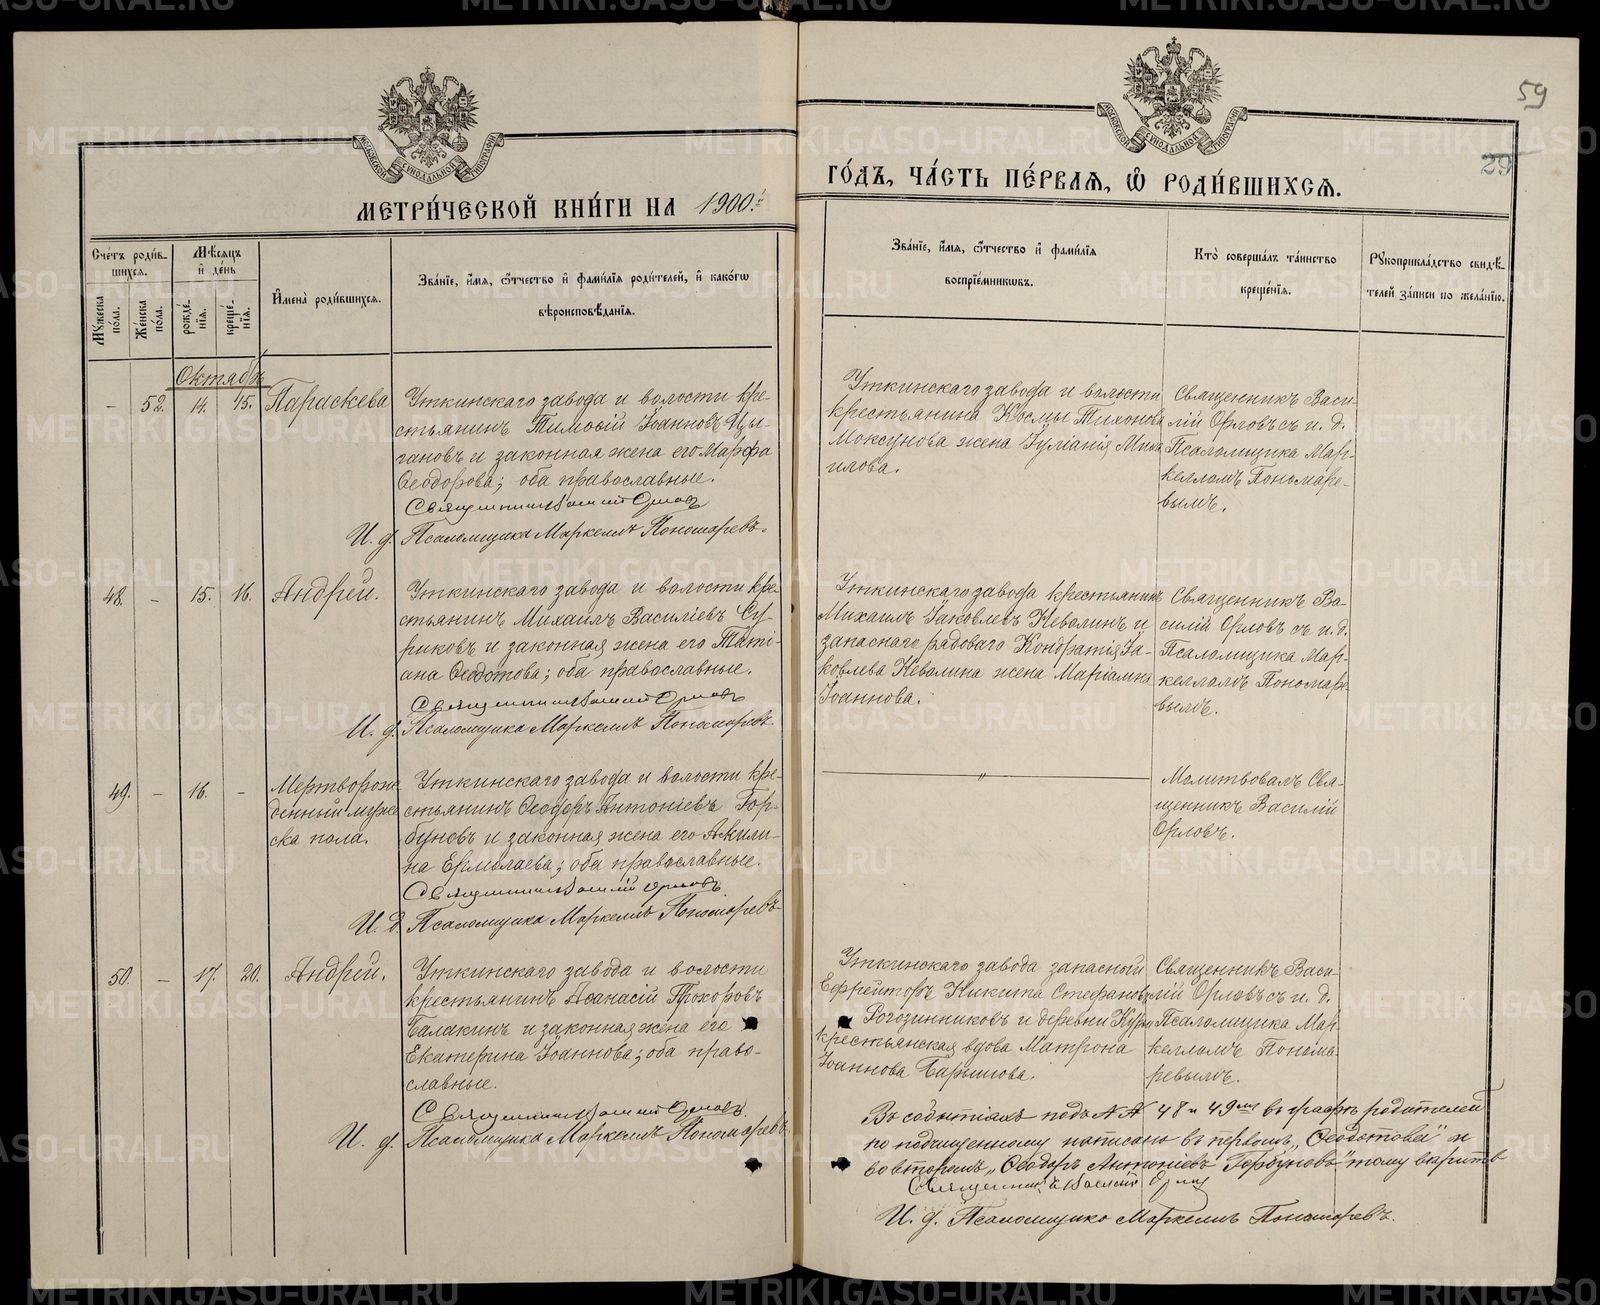 59
29
МЕТРИ́ЧЕСКОЙ КНИ́ГИ НА 1900й
ГО́ДЪ, ЧА́СТЬ ПЕ́РВАЯ, Ѡ РОДИ́ВШИХСЯ.
Сче́тъ роди́вшихся.
Мѣ́сяцъ и де́нь
Му́жеска по́ла.
Же́нска по́ла.
рожде́нїя.
креще́нїя.
Имена̀ роди́вшихся.
Зва́нїе, и́мя, ѻ́тчество и фами́лїя роди́телей, и како́гѡ
вѣроисповѣ́данїя.
Зва́нїе, и́мя, ѻ́тчество и фами́лїя
воспрїе́мниковъ.
Кто̀ соверша́лъ та́инство
креще́нїя.
Рꙋкоприкла́дство свидѣ́-
телей за́писи по жела́нїю.
Октябрь
– 52. 14. 15. Параскева
Уткинскаго завода и волости кре-
стьянинъ Тимоѳій Іоанновъ Цы-
гановъ и законная жена его Марѳа
Ѳеодорова; оба православные.
Священникъ Василій Орловъ
И. д. Псаломщика Маркеллъ Пономаревъ.
Уткинскаго завода и волости
крестьянина Космы Тихонова
Моксунова жена Іуліанія Миха
илова.
Священникъ Васи-
лій Орловъ съ и. д.
Псаломщика Мар-
келломъ Пономаре-
вымъ.
48. – 15. 16. Андрей.
Уткинскаго завода и волости кре-
стьянинъ Михаилъ Василіевъ Су-
риковъ и законная жена его Тати-
ана Ѳеодотова; оба православные.
Священникъ Василій Орловъ
И. д. Псаломщика Маркеллъ Пономаревъ
Уткинскаго завода крестьянинъ
Михаилъ Іаковлевъ Неволинъ и
запаснаго рядоваго Кондратія Іа-
ковлева Неволина жена Маріамна
Іоаннова.
Священникъ Ва-
силій Орловъ съ и. д.
Псаломщика Мар-
келломъ Пономаре
вымъ.
49. – 16. –
Мертворож
денный муже
ска пола.
Уткинскаго завода и волости кре-
стьянинъ Ѳеодоръ Антоніевъ Гор-
буновъ и законная жена его Акили-
на Ермолаева; оба православные.
Священникъ Василій Орловъ
И. д. Псаломщика Маркеллъ Пономаревъ
"
Молитвовалъ Свя-
щенникъ Василій
Орловъ.
50. – 17. 20. Андрей.
Уткинскаго завода и волости
крестьянинъ Аѳанасій Прохоровъ
Балакинъ и законная жена его
Екатерина Іоаннова; оба право-
славные.
Священникъ Василій Орловъ.
И. д. Псаломщика Маркеллъ Пономаревъ
Уткинскаго завода запасный
Ефрейторъ Никита Стефановъ
Рогозинниковъ и деревни
крестьянская вдова Матрона
Іоаннова Барышова.
Священникъ Васи-
лій Орловъ съ и. д.
Псаломщика Мар
келломъ Понома-
ревымъ.
Въ событіяхъ подъ №№ 48 и 49мъ въ графѣ родителей
по подчищенному написано въ первомъ „Ѳеодотова" и
во второмъ „Ѳеодоръ Антоніевъ Горбуновъ" тому вѣрить
Священникъ Василій Орловъ
И. д. Псаломщика Маркеллъ Пономаревъ.
METRIKI.GASO-URAL.RU